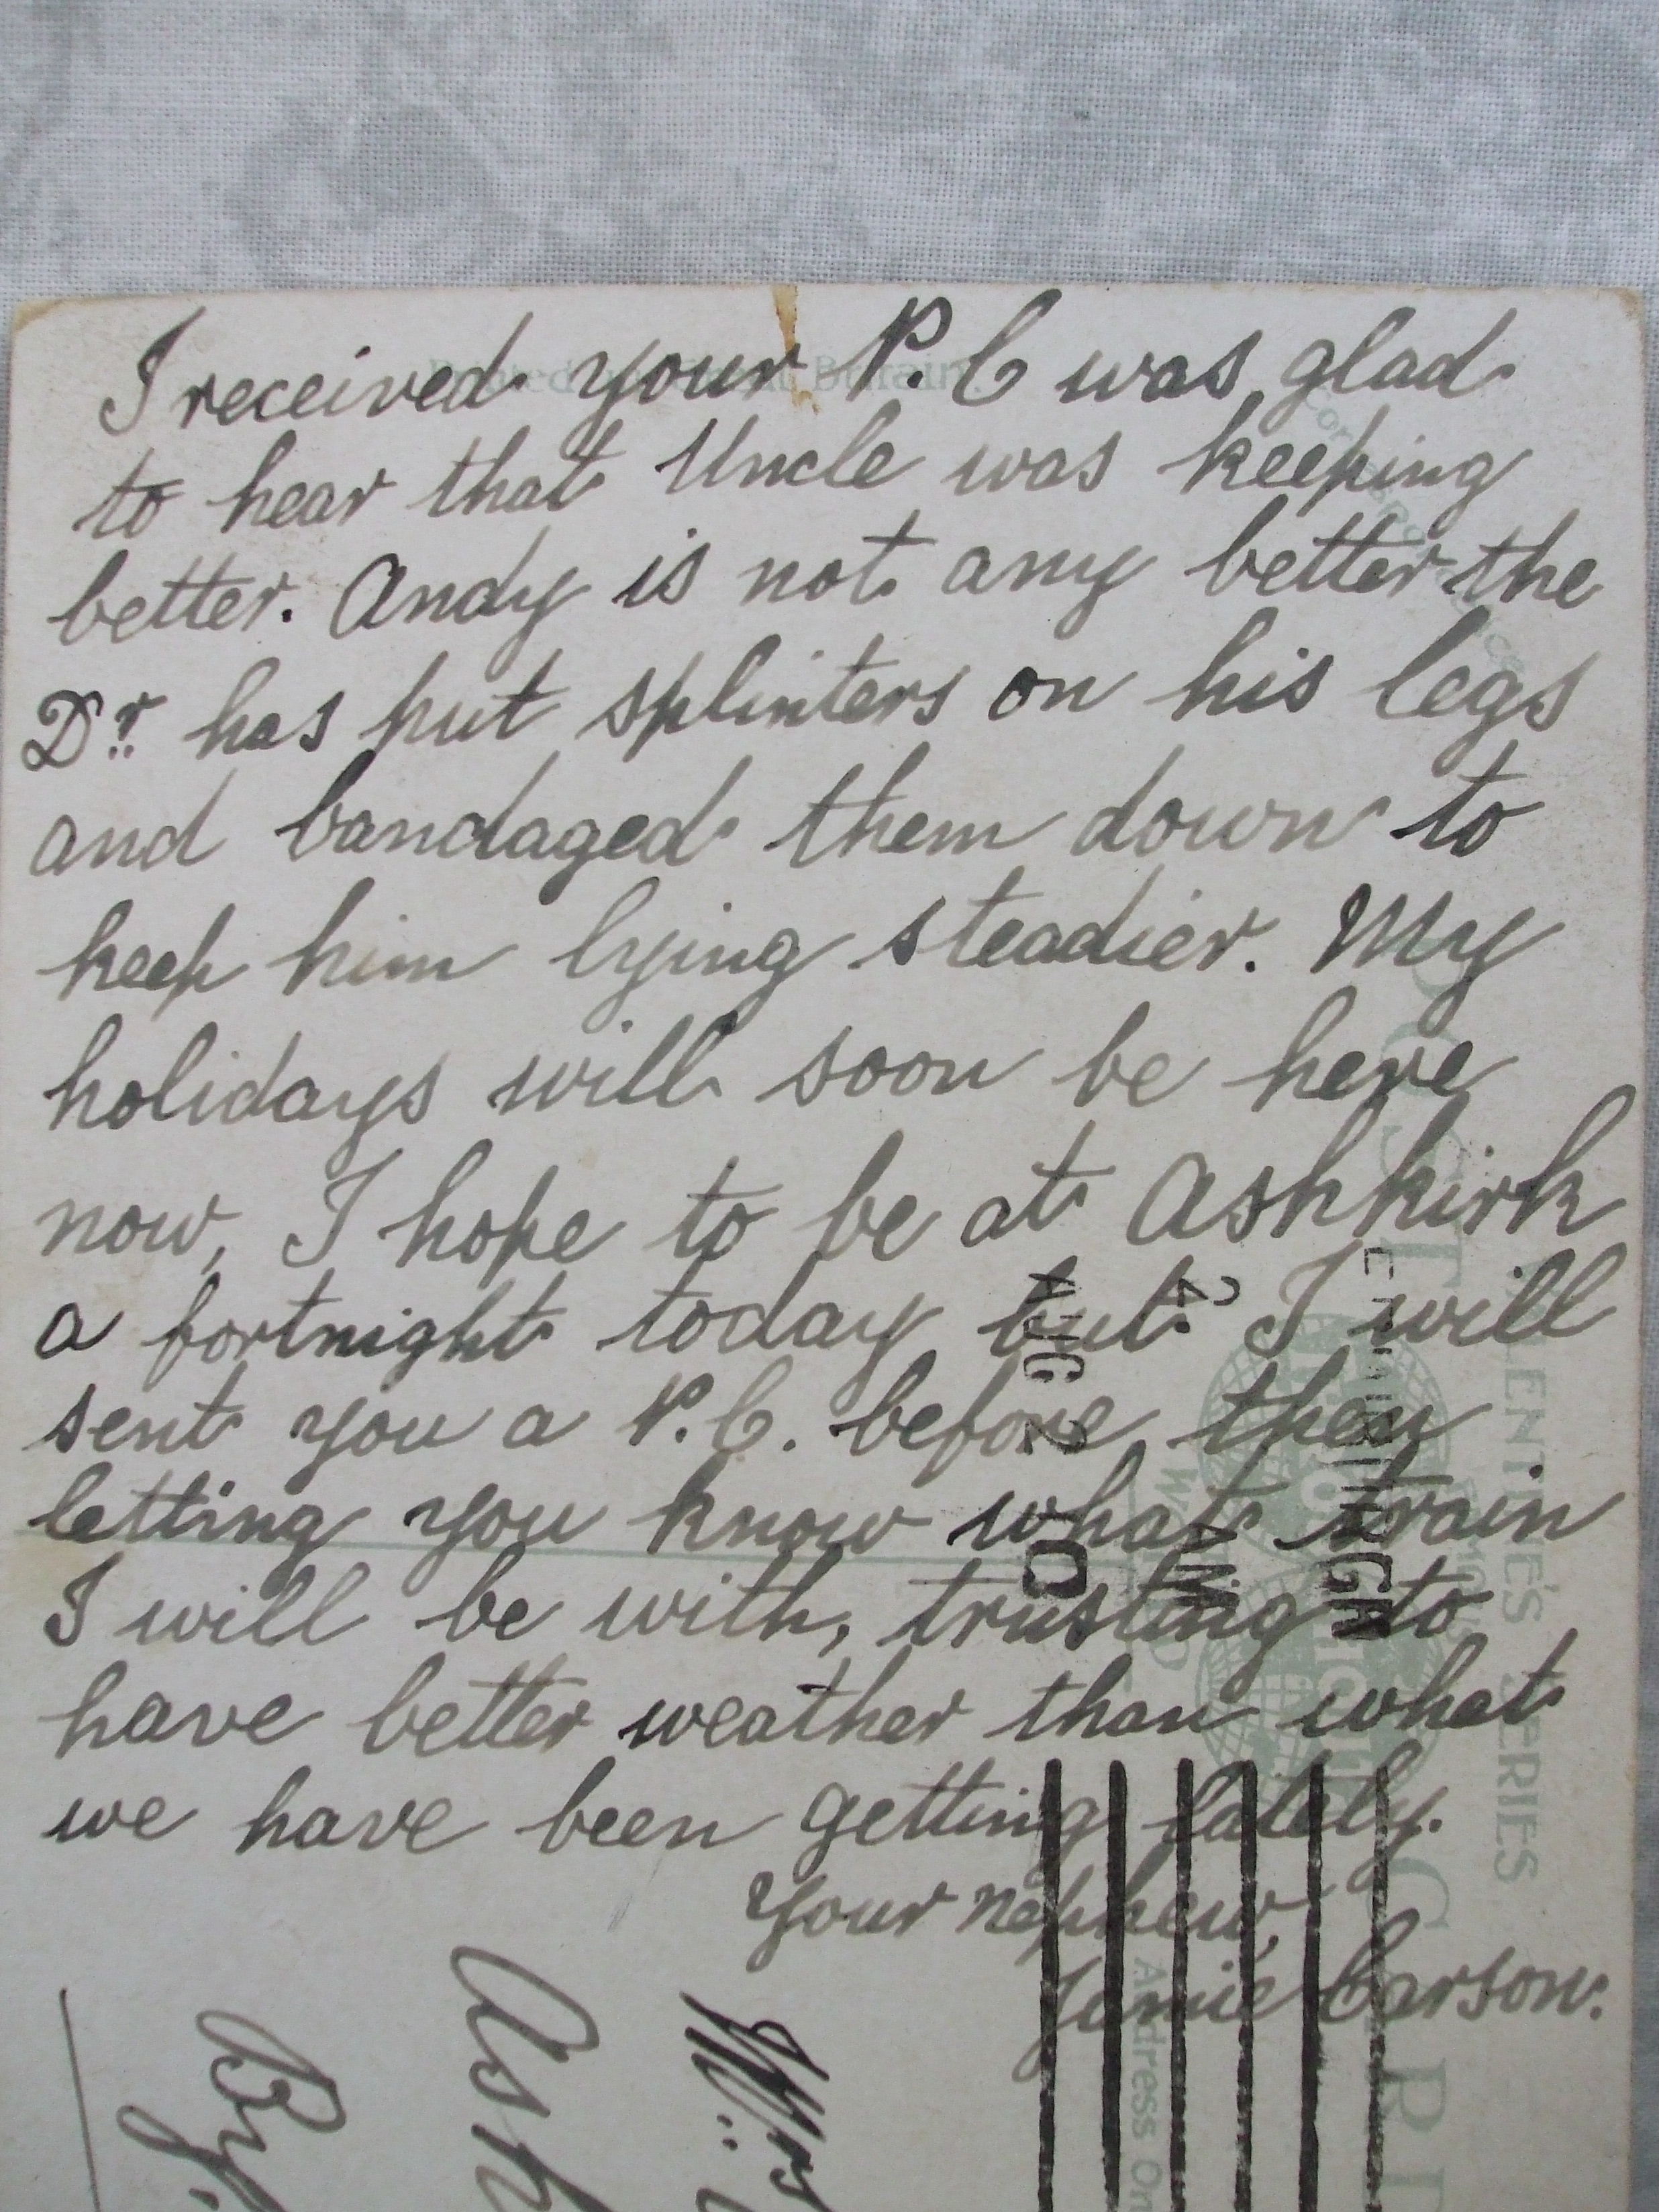 I received your P.C was glad
to hear that Uncle was keeping
better. Andy is not any better the
Dr. has put splinters on his legs
and bandaged them down to
keep him lying steadier. My
holidays will soon be here
now, I hope to be at Ashkirk
a fortnight today but I will
sent you a P.C. before then
letting you know what train
I will be with, trusting to
have better weather than what
we have been getting lately.
Your nephew,
Jamie Carson.
Mrs
Ash
By
Printed in Great Britain
VALENTINE'S SERIES
POST CARD
Address On
EDINBURGH
AUG 20